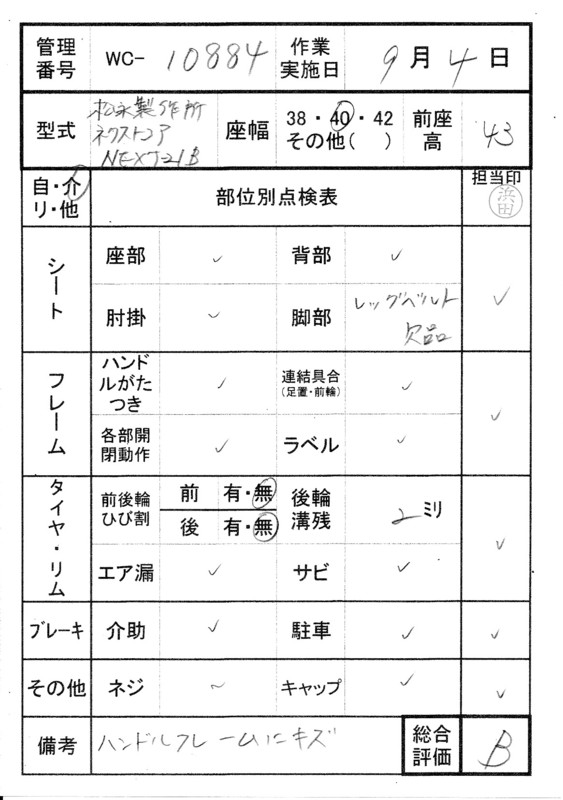 管理番号 WC- 10884 作業実施日 9月4日
型式 松永製作所 ネクストコア NEXT-21B 座幅 38・40・42 その他( ) 前座高 43
自・介 リ・他 部位別点検表 担当印 浜田
シート 座部 ✓ 背部 ✓ ✓
肘掛 ✓ 脚部 レッグベルト欠品
フレーム ハンドルがたつき ✓ 連結具合 (足置・前輪) ✓ ✓
各部開閉動作 ✓ ラベル ✓
タイヤ・リム 前後輪ひび割 前 有・無 後 有・無 後輪溝残 2ミリ ✓
エア漏 ✓ サビ ✓
ブレーキ 介助 ✓ 駐車 ✓ ✓
その他 ネジ ~ キャップ ✓ ✓
備考 ハンドルフレームにキズ 総合評価 B